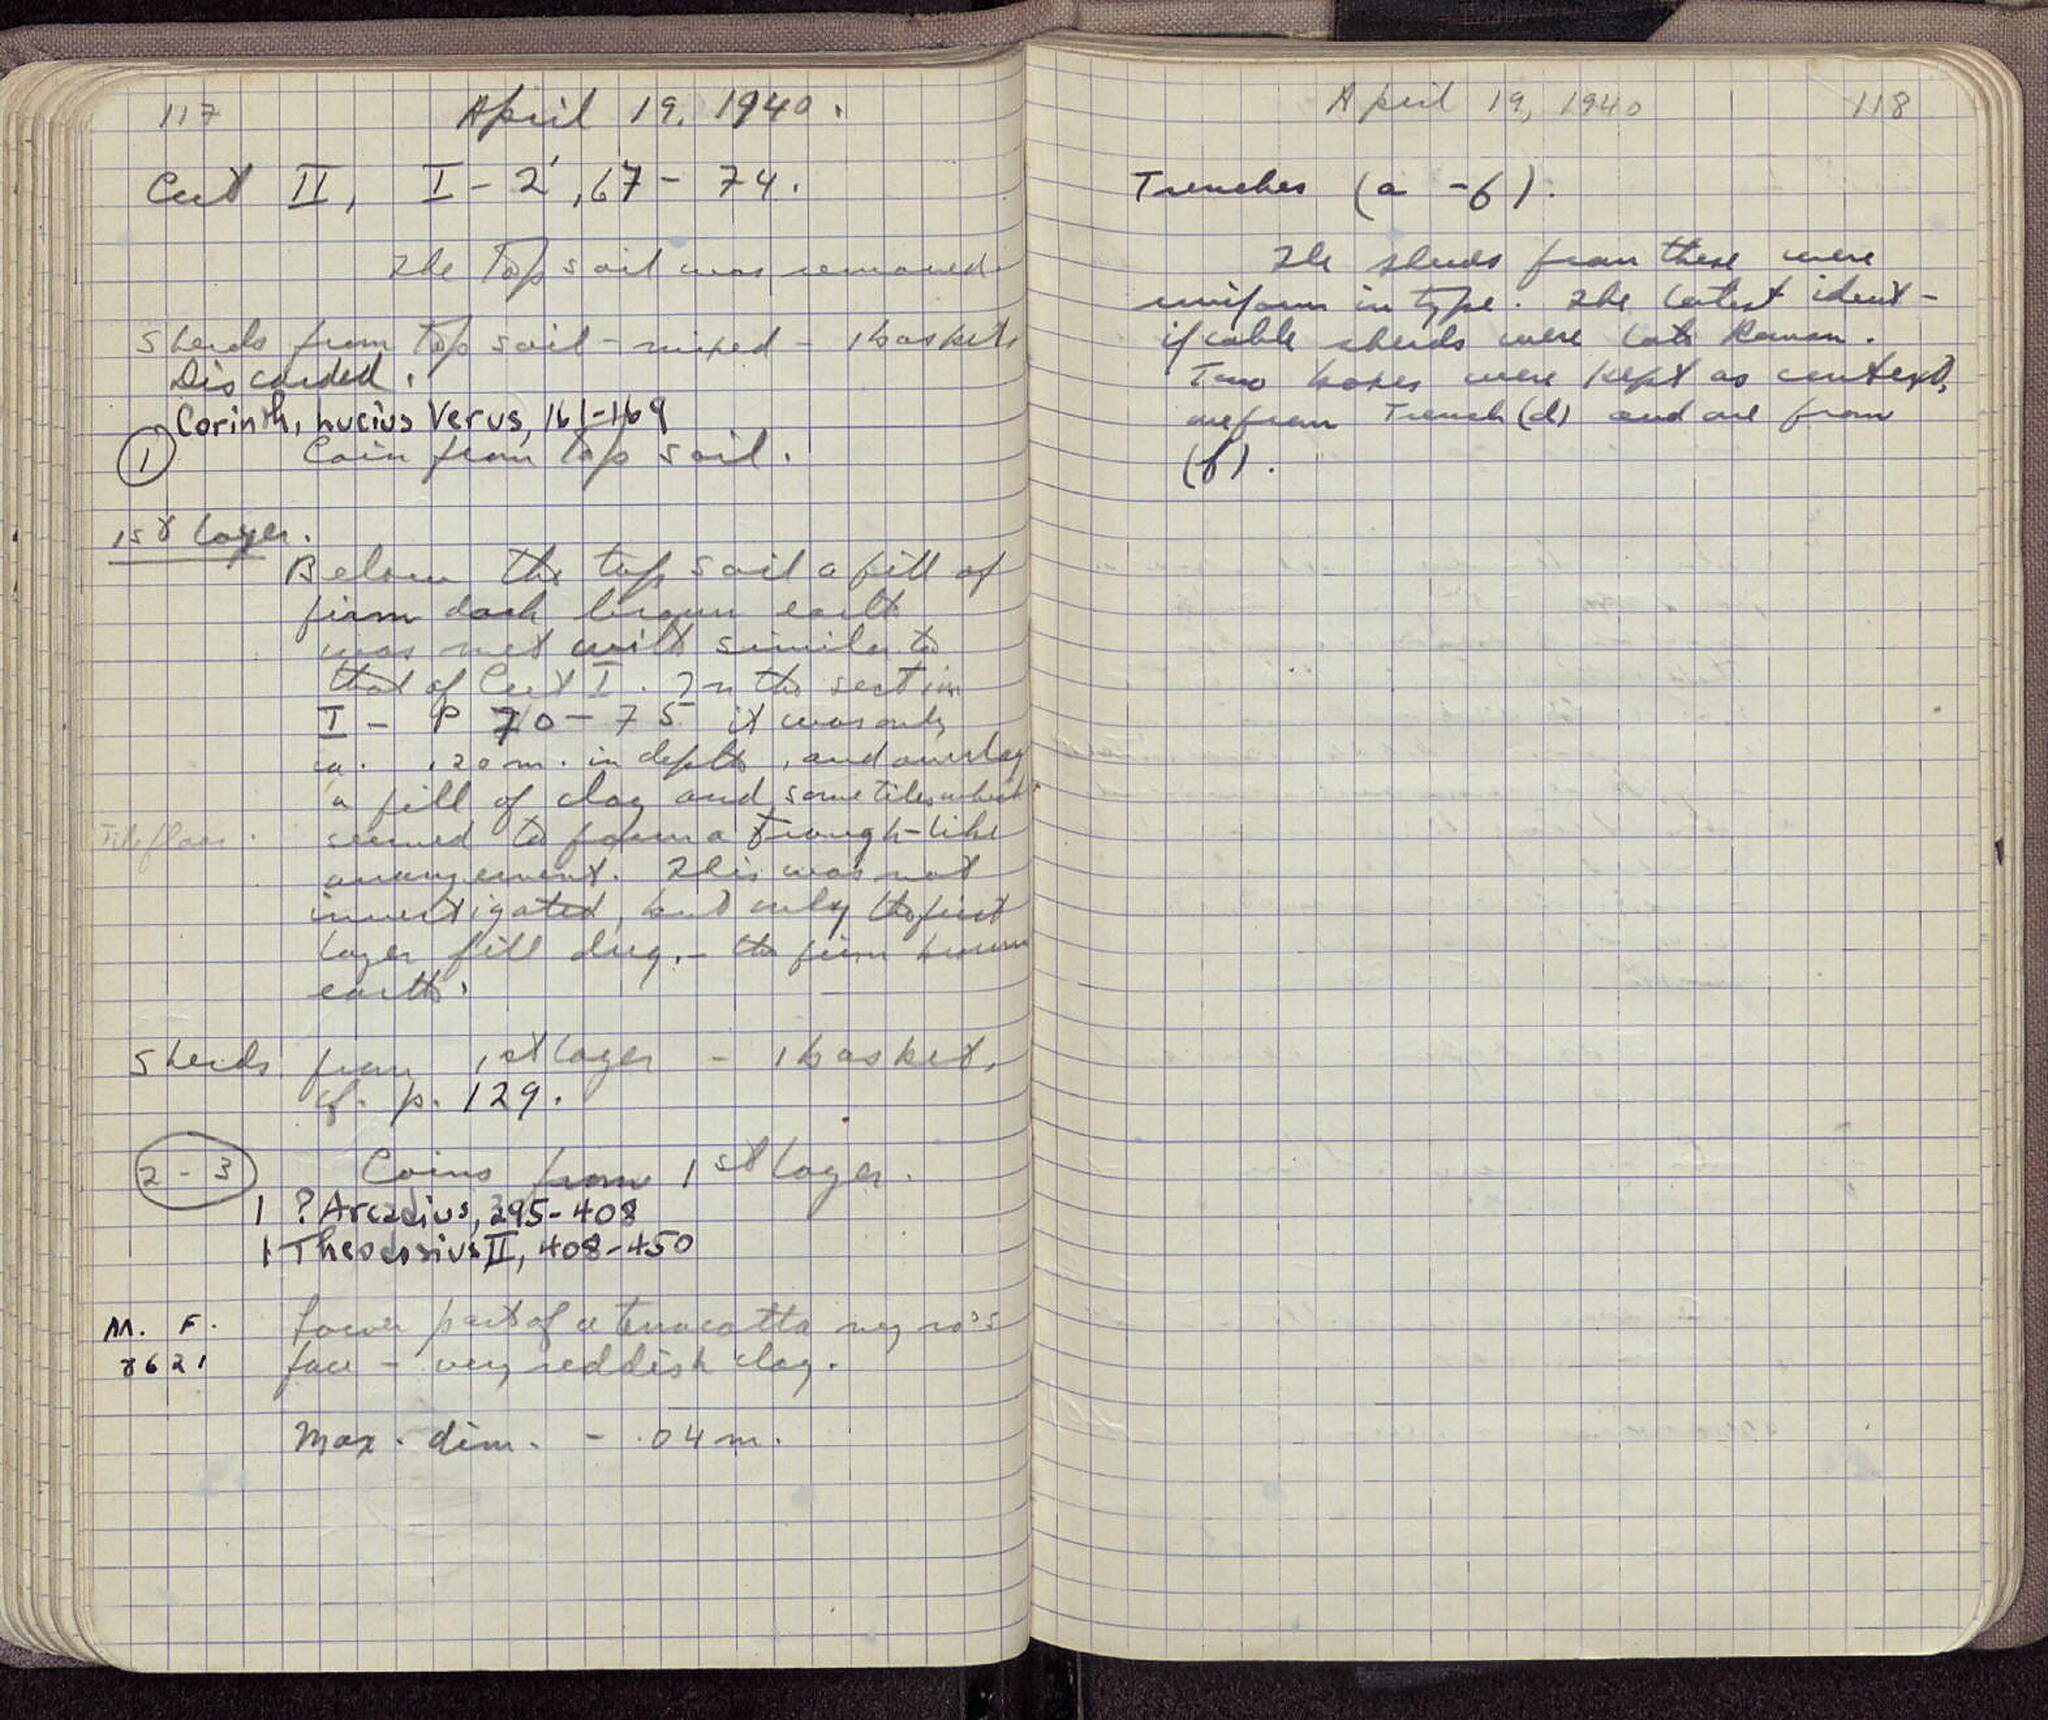 117 April 19, 1940.
Cut II, I - 2', 67 - 74.
The top soil was removed.
Sherds from top soil - mixed - 1 basket,
Discarded.
Corinth, Lucius Verus, 161-169
1 Coin from top soil.
1st layer.
Below the top soil a fill of
firm dark brown earth
was met with similar to
that of Cut I. In the section
I - P 70 - 75 it was only
ca. .20 m. in depth, and overlay
a fill of clay and some tiles which
Tile floor. seemed to form a trough-like
arrangement. This was not
investigated, but only the first
layer fill dug, - the firm brown
earth.
Sherds from 1st layer - 1 basket,
cf. p. 129.
2 - 3 Coins from 1st layer.
1 ? Arcadius, 395-408
1 Theodosius II, 408-450
M. F. Lower part of a terracotta negro's
8621 face - very reddish clay.
Max. dim. - .04 m.
April 19, 1940 118
Trenches (a - f).
The sherds from these were
uniform in type. The latest ident-
ifcable sherds were late Roman.
Two boxes were kept as context,
one from Trench (d) and one from
(f).